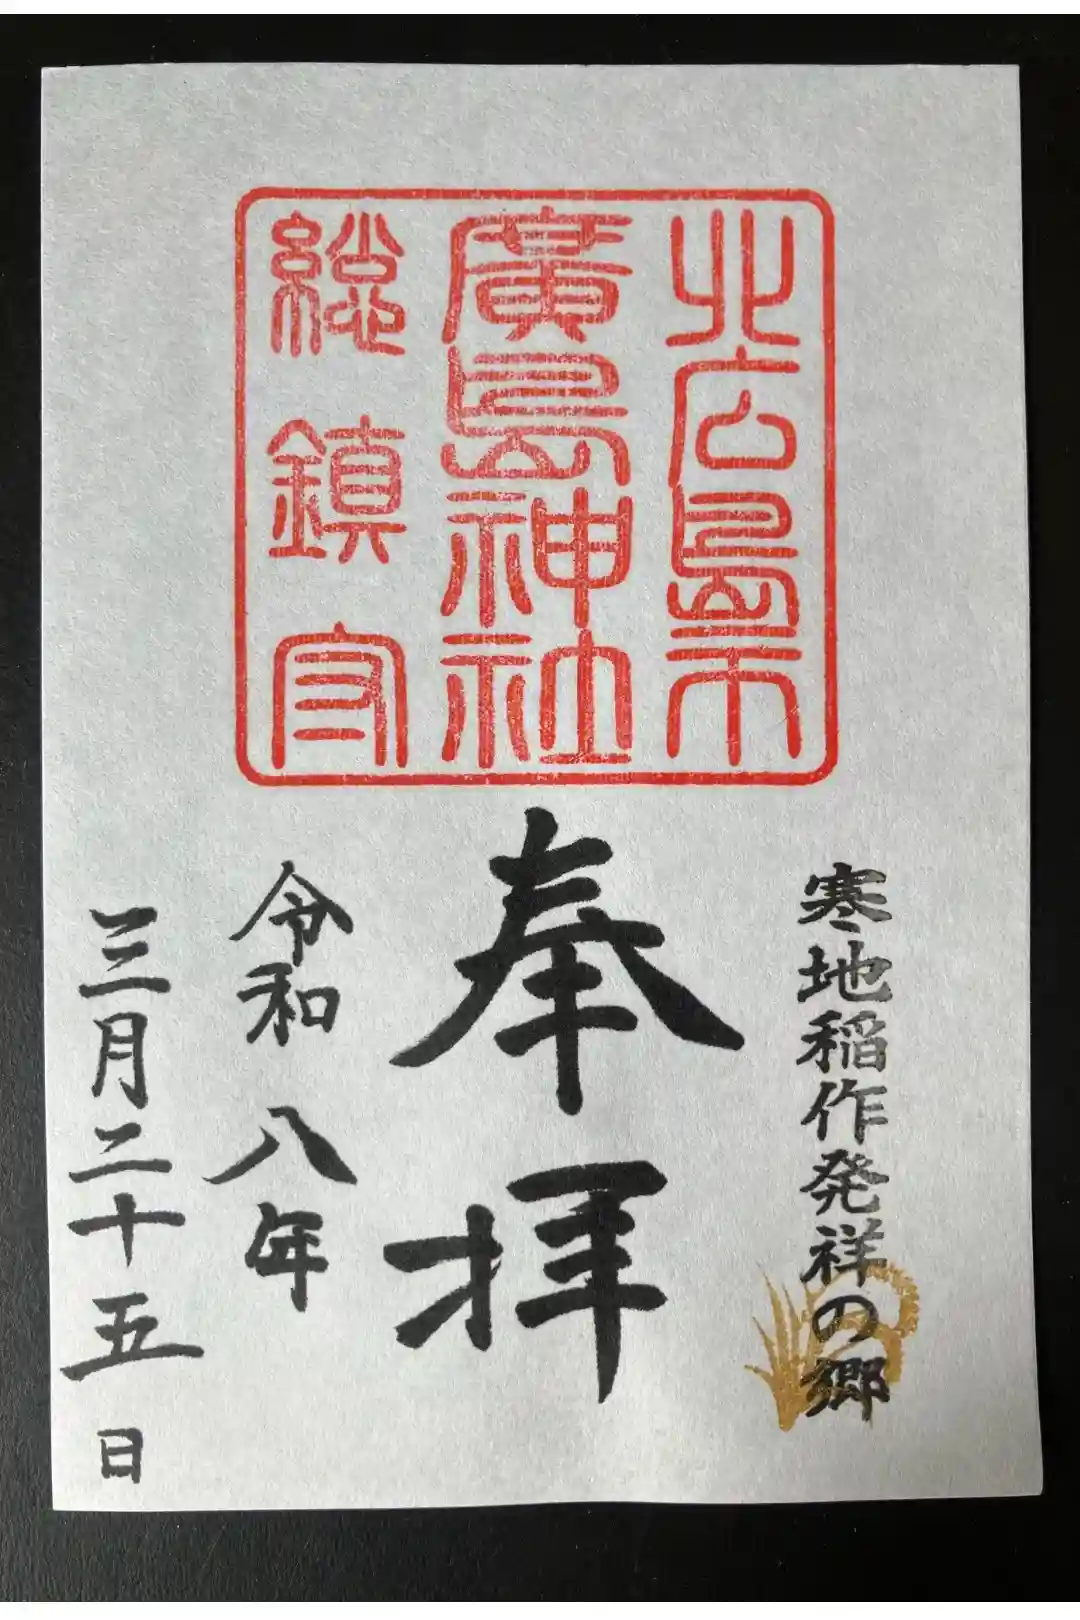 北広島市
廣島神社
総鎮守
寒地稲作発祥の郷
奉拝
令和八年
三月二十五日